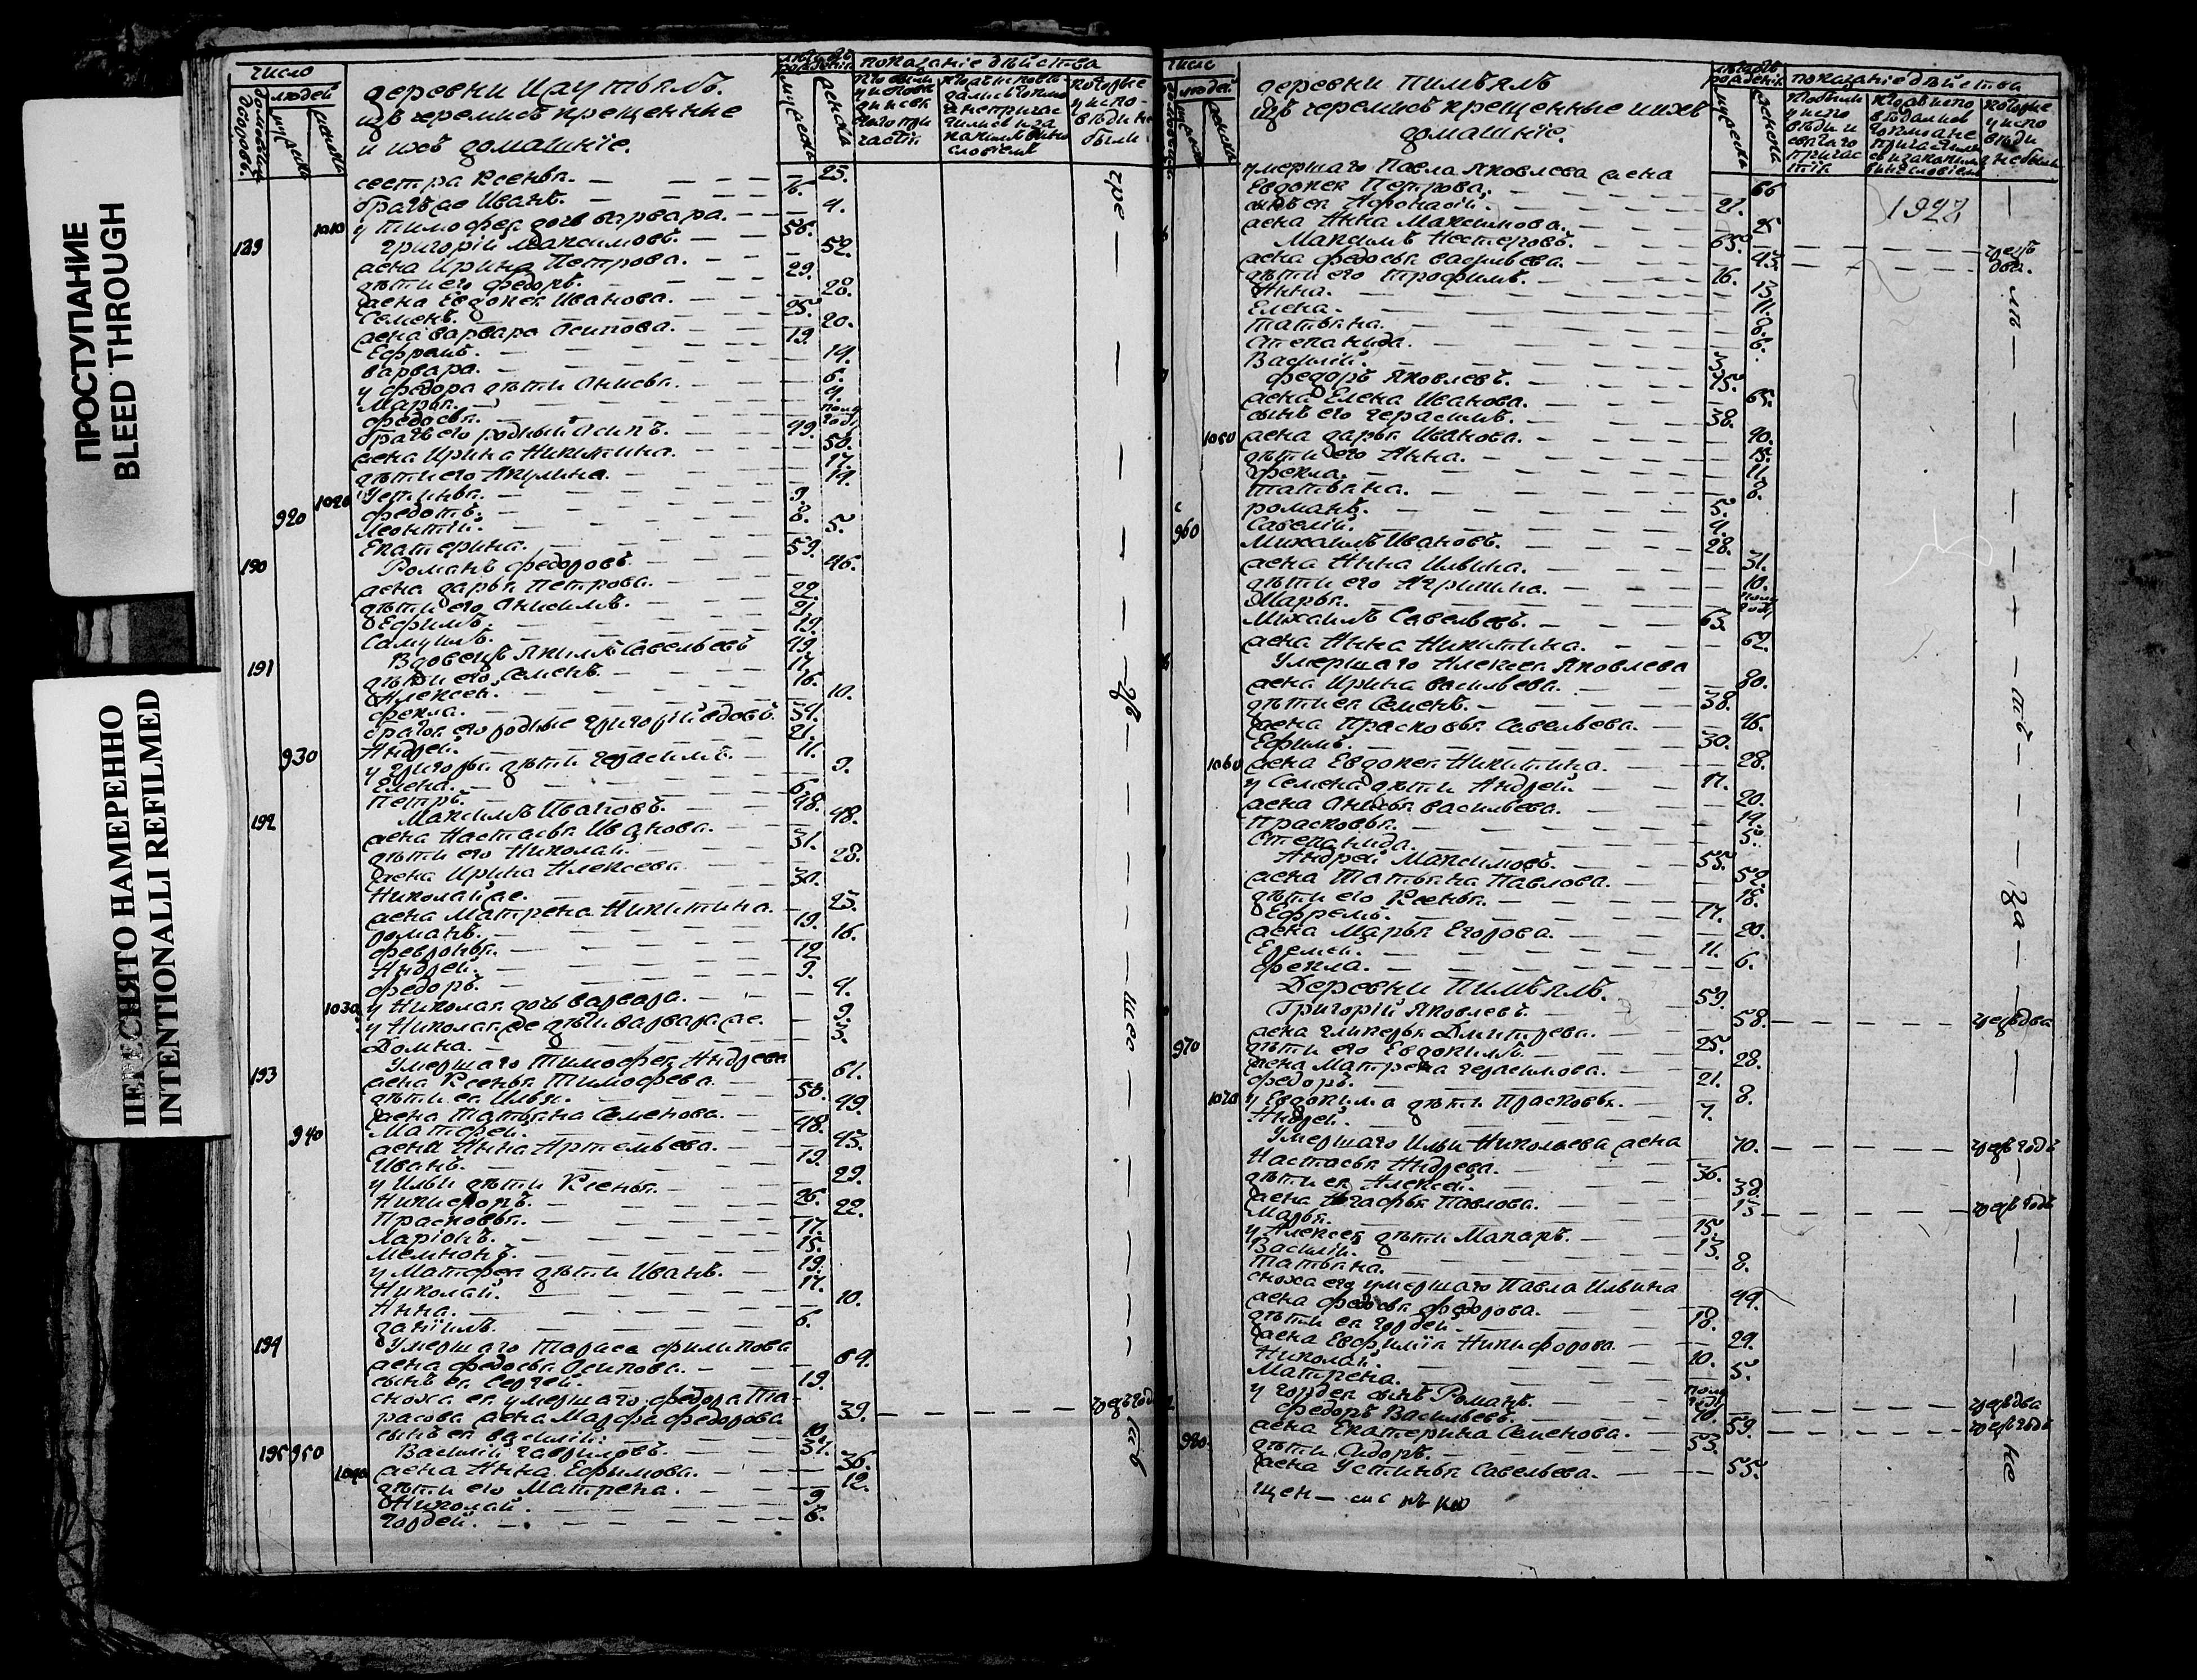 ПРОСТУПАНИЕ
BLEED THROUGH
ПЕРЕСНЯТО НАМЕРЕННО
INTENTIONALLI REFILMED
число
людей
показанiе дѣйства
деревни
изъ черемисъ крещенные
и ихъ домашнiе.
сестра Ксенья. 25.
братъ же Иванъ. 6.
1010 у Тимофея дочь варвара. 4.
129 григорiй Максимовъ. 56.
жена Ирина Петрова. 52.
дѣти его федоръ. 29.
жена Евдокея Иванова. 28.
Семенъ. 25.
жена варвара Осипова. 20.
Ефремъ. 19.
варвара. 14.
у федора дѣти Анисья. 6.
Марья. 4.
федосья. полу годъ
братъ его родный Осипъ. 49.
жена Ирина Никитина. 50.
дѣти его Акулина. 17.
1020 Устинья. 14.
920 федотъ. 9.
Леонтiй. 8.
Екатерина. 5.
190 Романъ федоровъ. 59.
жена дарья Петрова. 46.
дѣти его Анисимъ. 22.
Ефимъ. 21.
Самуилъ. 19.
191 Вдовецъ Якимъ Савельевъ 49.
дѣти его Семенъ. 17.
Алексей. 16.
фекла. 10.
братья его родные григорiй вдовъ. 34.
930 Андрей. 21.
у григорья дѣти герасимъ. 11.
Елена. 9.
Петръ. 6.
192 Максимъ Ивановъ. 48.
жена Настасья Иванова. 48.
дѣти его Николай. 31.
жена Ирина Алексеева. 28.
Николай же. 30.
жена Матрена Никитина. 23.
романъ. 19.
февронья. 16.
Андрей. 12
федоръ. 9.
1030 у Николая дочь варвара. 4.
у Николая же дѣти варвара же. 9.
Домна. 3.
193 Умершаго Тимофея Андреева
жена Ксенья Тимофеева. 61.
дѣти ея Илья. 50.
жена Татьяна Семенова. 49.
940 Матфей. 48.
жена Анна Артемьева. 45.
Иванъ. 19.
у Ильи дѣти Ксенья. 29.
Никифоръ. 26.
Прасковья. 22.
Ларiонъ. 17.
Мемнонъ. 15.
у Матфея дѣти Иванъ. 19.
Николай. 17.
Анна. 10.
данiилъ. 6.
194 Умершаго Тараса филипова
жена федосья Осипова. 64.
сынъ ея Сергей. 19.
сноха ея умершаго федора Та-
расова жена Марфа федорова 39.
сынъ ея василiй. 10.
195 950 Василiй гавриловъ. 37.
1040 жена Анна Ефимова. 36.
дѣти его Матрена. 12.
Николай. 9.
гордей. 6.
деревни Пимъялъ
изъ черемисъ крещенные и ихъ
домашнiе.
показанiе дѣйства
умершаго Павла Яковлева жена
Евдокея Петрова. 66
1927
сынъ ея Афонасiй. 27.
жена Анна Максимова. 25
Максимъ Нестеровъ. 65.
жена федосья васильева. 43.
дѣти его Трофимъ. 16.
Анна. 13
Елена. 11.
Татьяна. 8.
Степанида. 6.
Василiй. 3.
федоръ Яковлевъ. 75.
жена Елена Иванова. 65.
сынъ его герасимъ. 38.
1050 жена дарья Иванова. 40.
дѣти его Анна. 15.
фекла. 11.
татьяна. 8.
романъ. 5.
960 Савелiй. 4.
Михаилъ Ивановъ. 28.
жена Анна Ильина. 31.
дѣти его Агрипина. 10.
Марья. полу годъ
Михаилъ Савельевъ. 63.
жена Анна Никитина. 62.
Умершаго Алексея Яковлева
жена Ирина васильева. 80.
дѣти ея Семенъ. 38.
жена Прасковья Савельева. 46.
Ефимъ. 30.
1060 жена Евдокея Никитина. 28.
у Семена дѣти Андрей. 17.
жена Анисья васильева. 20.
Прасковья. 14.
Степанида. 5.
Андрей Максимовъ. 55.
жена Татьяна Павлова. 52.
дѣти его Ксенья. 18.
Ефремъ. 17.
жена Марья Егорова. 20.
Еремей. 11.
фекла. 6.
Деревни Пимъялъ.
Григорiй Яковлевъ. 59.
жена гликерья Дмитрева. 58.
970 дѣти его Евдокимъ. 25.
жена Матрена герасимова. 28.
федоръ. 21.
1070 у Евдокима дѣти Прасковья. 8.
Андрей. 7.
Умершаго Ильи Никольева жена
Настасья Андреева. 70.
дѣти ея Алексей. 36.
жена Агафья Павлова. 38.
Марья. 15
у Алексея дѣти Макаръ. 15.
Василiй. 13.
Татьяна. 8.
сноха его умершаго Павла Ильина
жена федосья федорова. 49.
дѣти ея гордей. 18.
жена Евфимiя Никифорова. 29.
Николай. 10.
Матрена. 5.
у гордея сынъ Романъ. полу годъ
федоръ Васильевъ. 70.
жена Екатерина Семенова. 59.
980 дѣти Сидоръ. 53.
жена Устинья Савельева. 55.